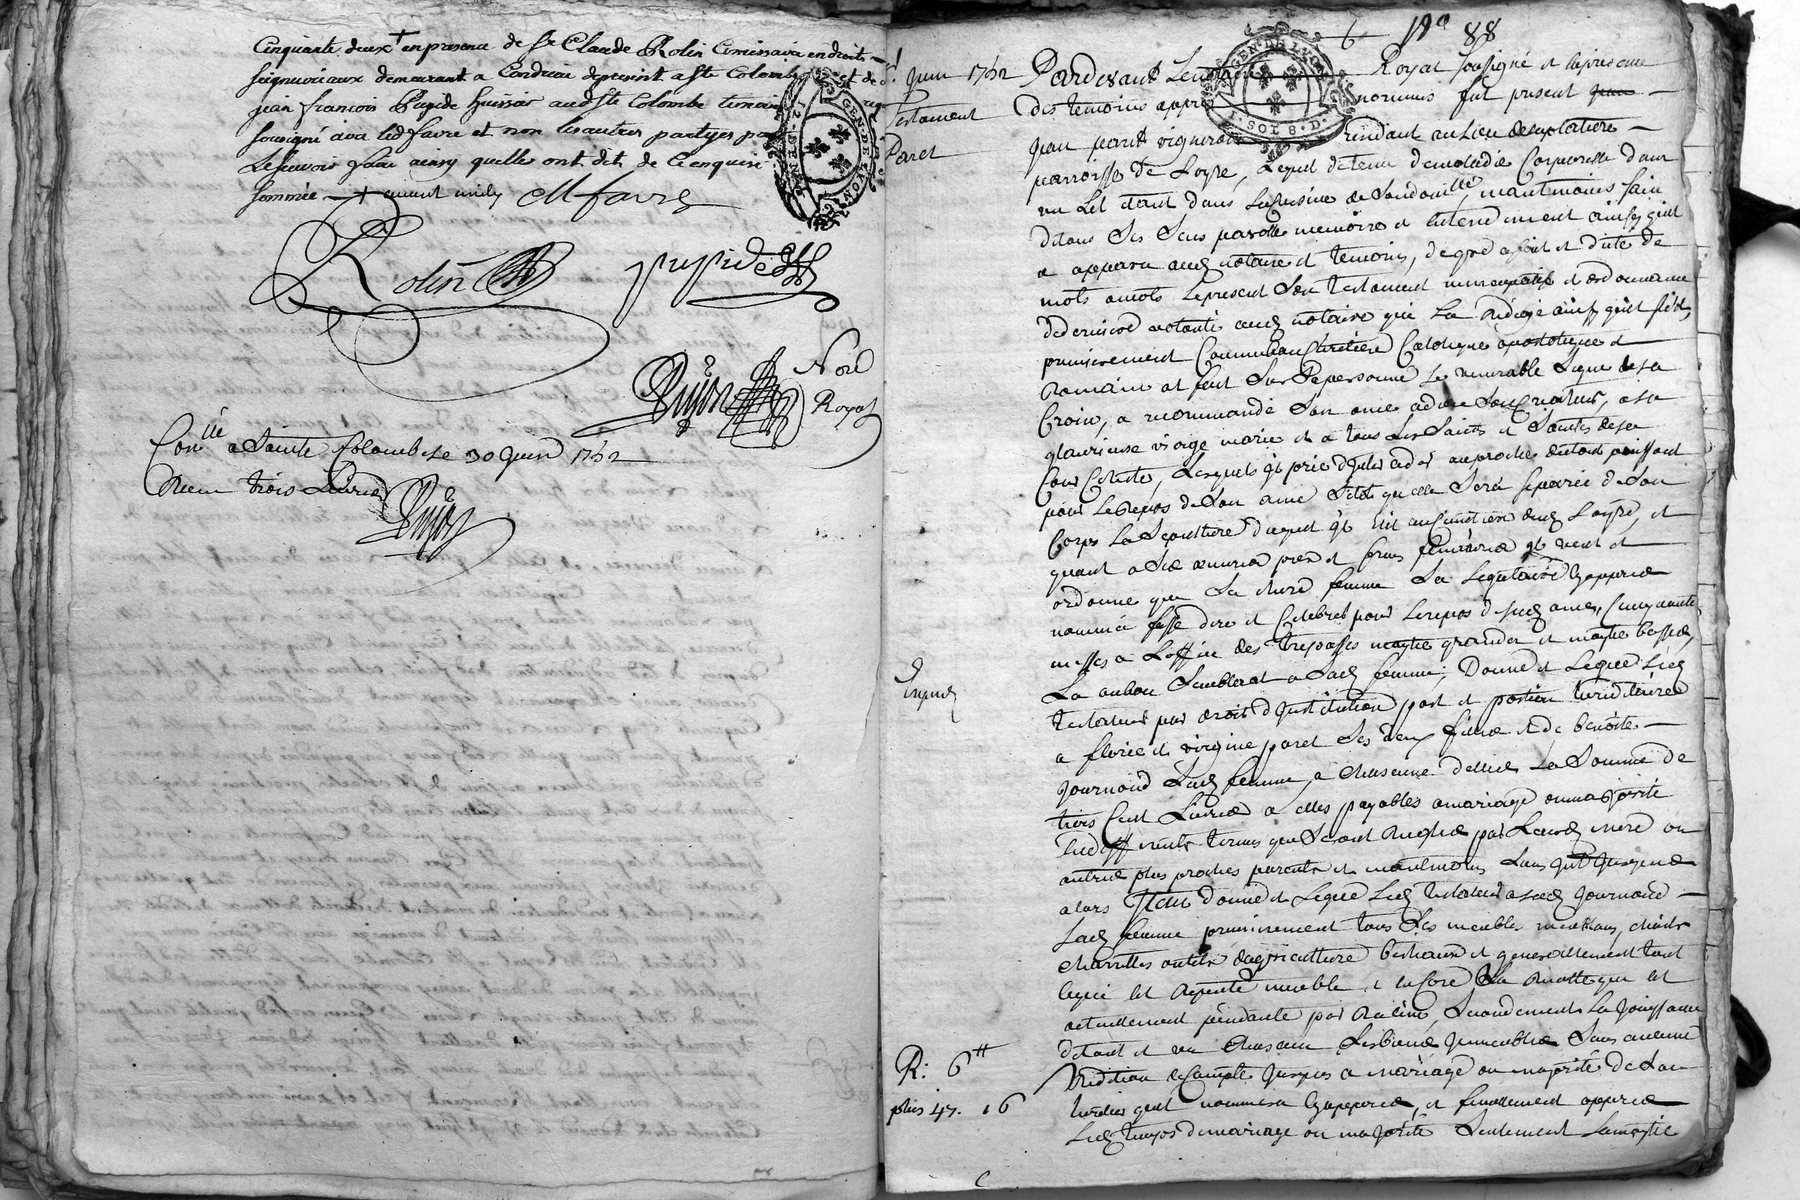 Cinquante deux + en presence de Sr Claude Rolin Comissaire en droits
seigneuriaux demeurant a Condrieu de present a Ste Colombe et de Sr
jean françois Pupide huissier aud Ste Colombe temoins
sousigné avec led favre et non les autres partyes pour
ne scavoir faire ainsy quelles ont dit de ce enquis
sommée + avant midy M favre
Rolin
pupide
Pujos Nore
Royal
Conllé a Sainte Colombe le 30 Juin 1762
Receu trois Livres
Pujos
6 No 88
Juin 1762
Testament
Paret
Pardevant Le notaire Royal sousigné et la presence
des temoins apprès nommés fut present
jean paret vigneron residant au Lieu de
parroisse de Loyre, Lequel detenu de maladie Corporelle dans
un Lit etant dans la Cuisine de Son domille, neantmoins sain
detous Ses Sens parolle memoire et entendement ainsy quil
a apparu aud notaire et temoins, de gré a fait et dicté de
mots a mots Le present Son testament nuncupatif et ordonnance
de derniere volonté aud notaire qui La redigé ainsy quil suit,
premierement Comme bon Chretien Catolique apostolique et
Romain at fait Sur Sa personne Le venerable Signe de la
Croix, a recommandé Son ame a dieu Son Createur, a la
glorieuse vierge marie et a tous Les Saints et Saintes de la
Cour Celeste, Lesquels il prie d'interceder auproches du tout puissant
pour Le Repos de Son ame Sitot quelle Sera separée de Son
Corps La Sepulture duquel il Elit au Cimetiere dud Loyre, et
quant a Ses œuvres pies et frais funeraires il veut et
ordonne que La mere femme Sa Legataire cy apprès
nommée fasse dire et Celebrer pour Le repos de sad ame, Cinquante
messes a L'office des trepassés moytié grandes et moytié basses,
La ou bon Semblerat a Sad femme; Donne et Legue Led
Testateur par droit d'Institution part et portion hereditaire
Expedié
a florie et virgine paret Ses deux filles et de benoite
Journoud Sad femme, a Chacune delles La Somme de
trois Cent Livres a elles payables a mariage ou majorité
en differents termes que Seront Reglés par Laditte mere ou
autres plus proches parents et neantmoins Sans Interets jusques
alors Item donne et Legue Led Testateur a Sad Journoud
Sad femme premierement tous Ses meubles meublans, chars
charettes outils dagriculture bestiaux et generallement tout
ce qui est Reputé meuble, et encore La Recolte qui est
actuellement pendante par Racine, Secondement La jouissance
detous et un Chacuns Ses biens Immeubles Sans aucune
R: 6tt
Reddition de Compte jusques a mariage ou majorité de Son
plus 47. 16
heritier quil nommera cy apprès, et finallement apprès
Led temps de mariage ou majorité Seulement La moytié